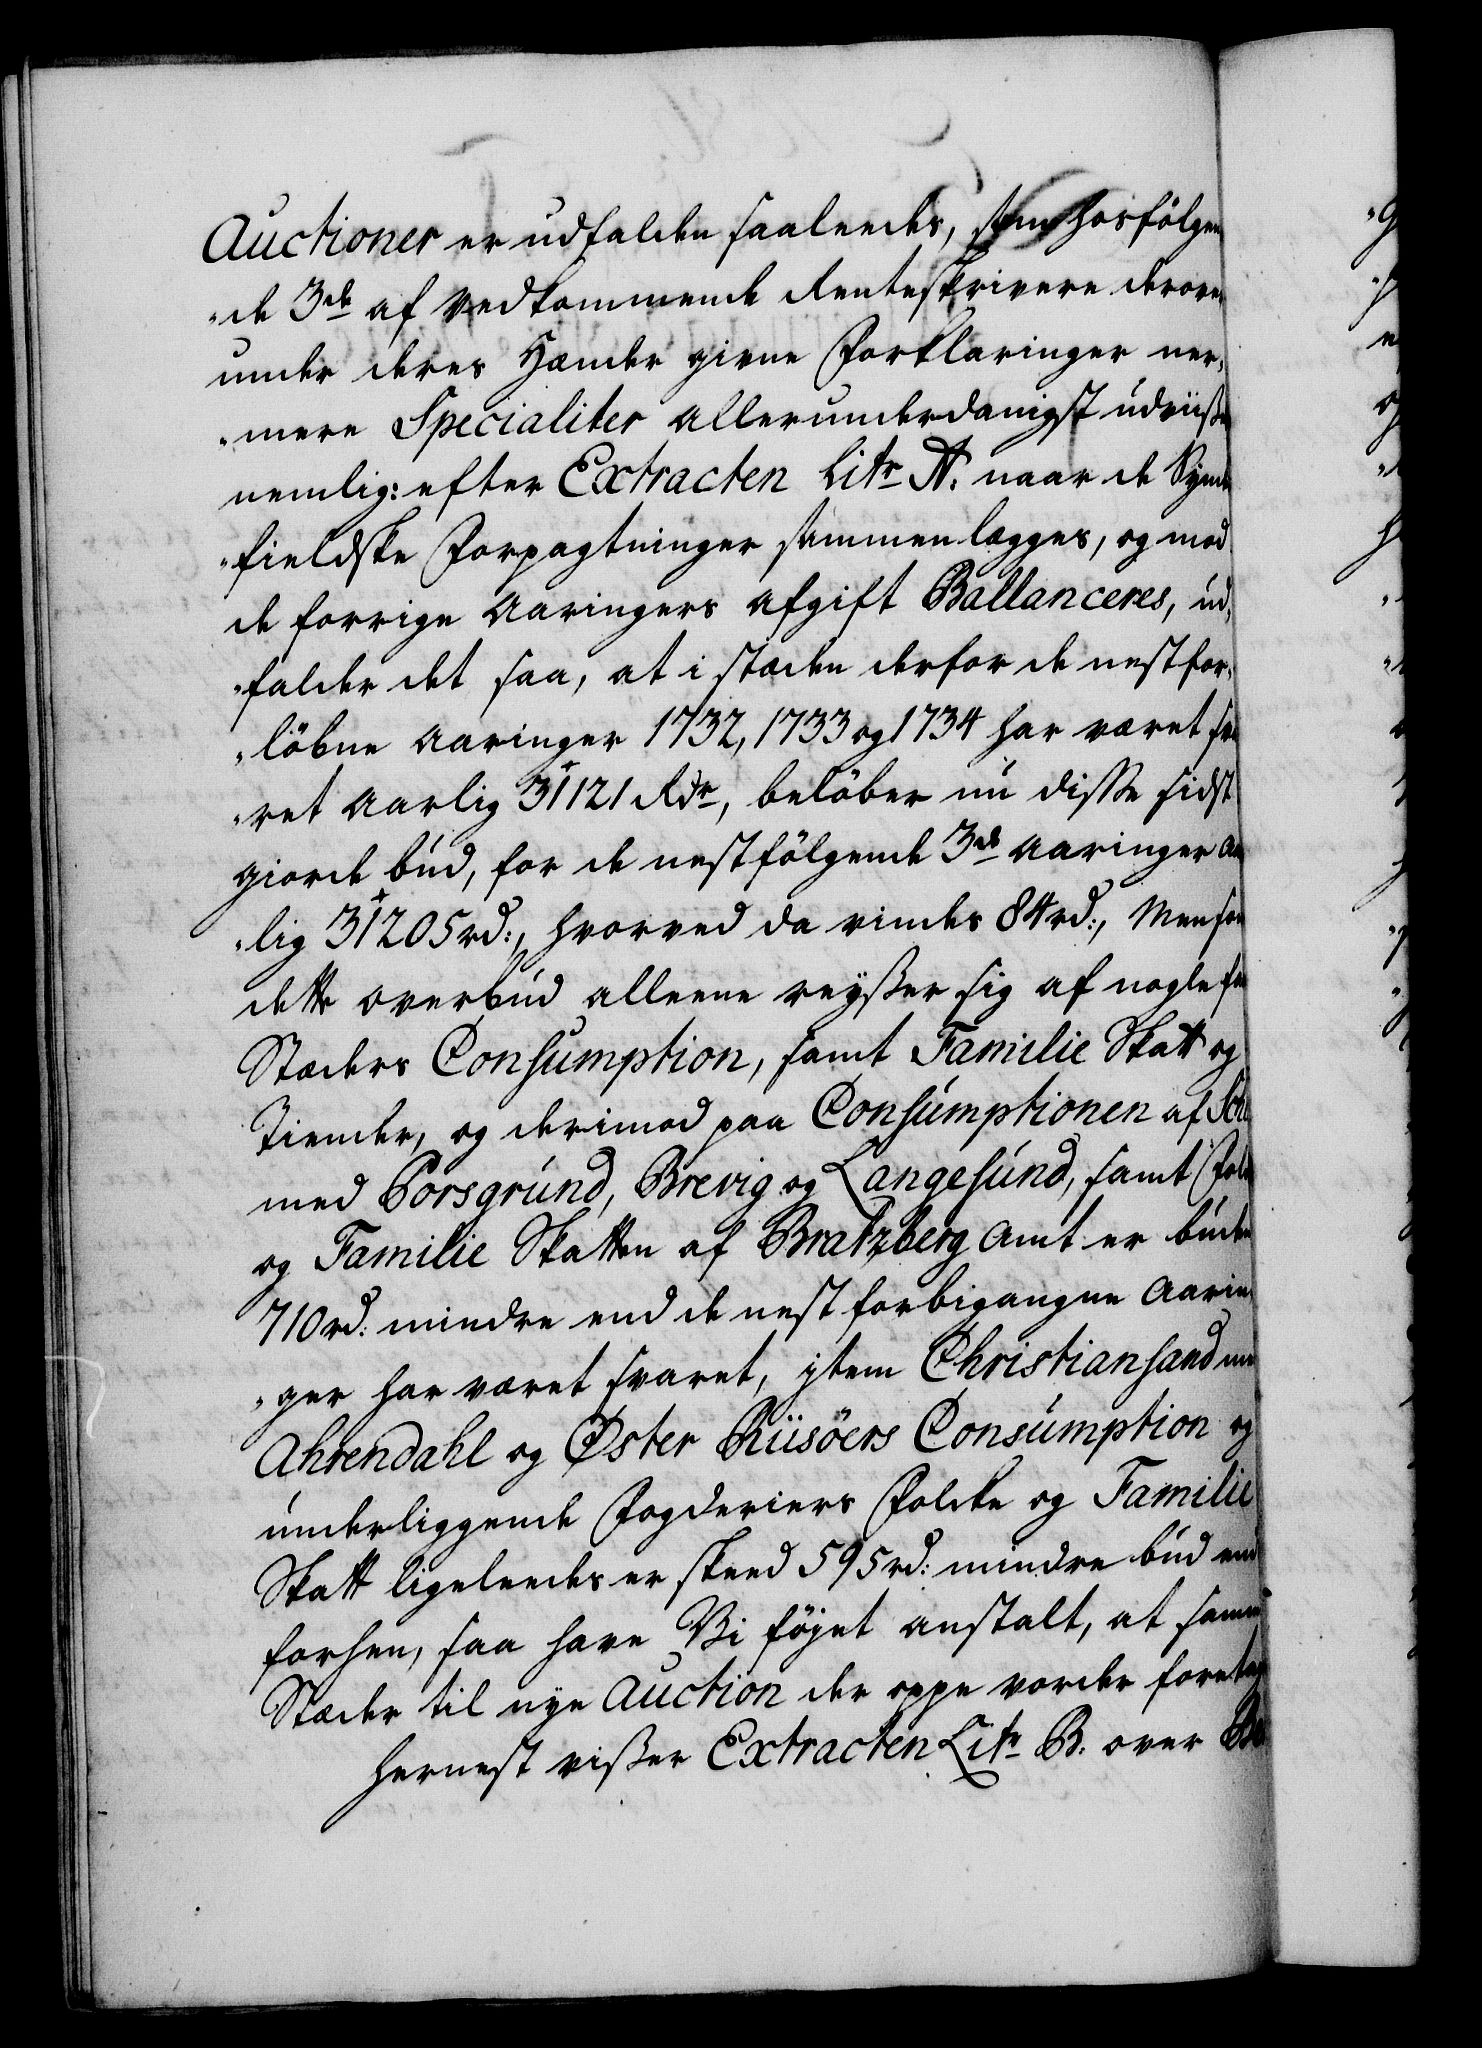 Auctioner er udfalden saaleedes, som hosfölgen
de 3de af vedkommende Renteskrivere derover
under deres Hænder givne Forklaringer ner-
mere Specialiter allerunderdanigst udviise
nemlig: efter Extracten Litr A. naar de Synden
fieldske Forpagtninger sammenlægges, og mod
de forrige Aaringers afgift Ballanceres, ud-
falder det saa, at i stæden derfor de nestfor-
löbne Aaringer 1732, 1733 og 1734 har været sva
ret Aarlig 31121 Rdr, belöber nu disse sidst
giorde bud, for de nestfölgende 3de Aaringer Aar
lig 31205 rd:, hvorved da vindes 84 rd:, Men som
dette overbud alleene reyßer sig af nogle faa
Stæders Consumption, samt Familie Skatt og
Tiender, og derimod paa Consumptionen af
med Porsgrund, Brevig og Langesund, samt Folcke
og Familie Skatten af Bratzberg Amt er buden
710 rd: mindre end de nest forbigangne Aarin
ger har været svaret, jtem Christiansand med
Ahrendahl og Øster Riisöers Consumption og
underliggende Fogderiers Folcke og Familie
Skatt ligeleedes er skeed 595 rd: mindre bud end
forhen, saa have Vi föjet anstalt, at samme
Stæder til nye Auction der oppe vorder foretagen
Hernest viißer Extracten Litr B. over